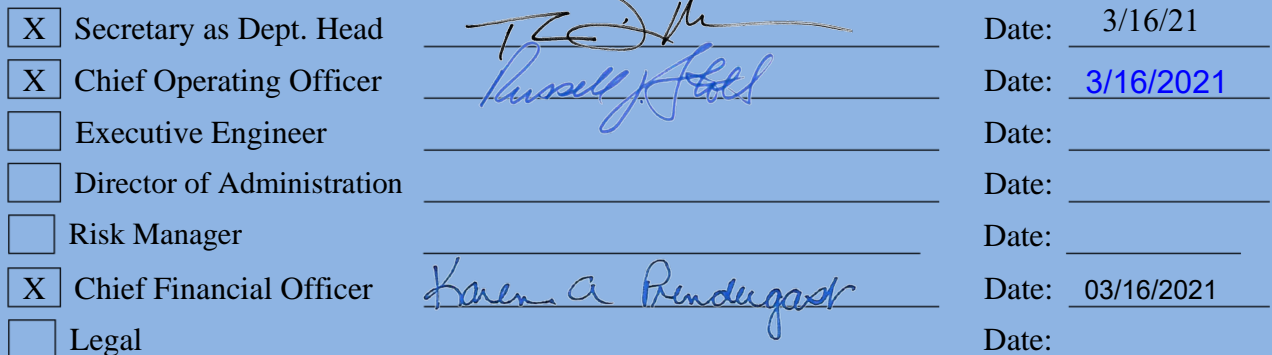 X Secretary as Dept. Head Date: 3/16/21
X Chief Operating Officer Russell J Date: 3/16/2021
Executive Engineer Date:
Director of Administration Date:
Risk Manager Date:
X Chief Financial Officer Karen A Prendergast Date: 03/16/2021
Legal Date: